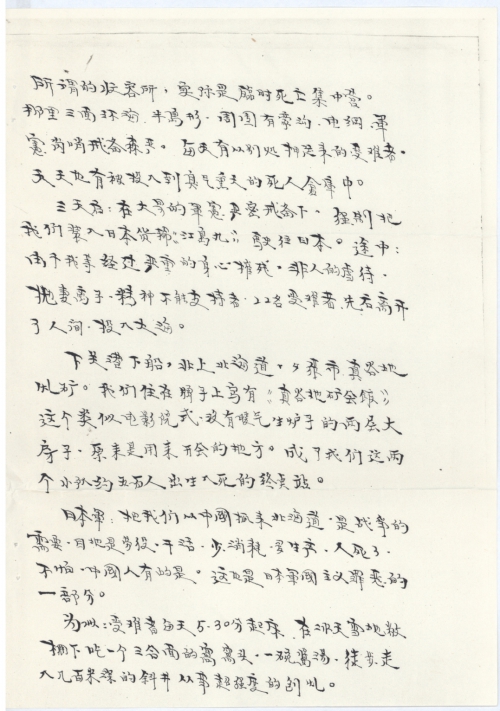 所谓的收容所，实际是临时死亡集中营。
那里三面环海，半岛形，周围有壕沟，电网，军
宪岗哨戒备森严。每天有从别处押送来的受难者，
天天也有被投入到臭气熏天的死人仓库中。
三天后：在大哥的军宪严密戒备下，强制把
我们装入日本货轮《江岛丸》驶往日本。途中：
由于我等经过严重的身心摧残，非人的虐待，
抛妻离子，精神不能支持者，22名受难者，先后离开
了人间，投入大海。
下关港下船，北上北海道，夕张市真谷地
煤矿。我们住在牌子上写有《真谷地矿会馆》
这个类似电影院式，没有暖气生炉子的两层大
房子，原来是用来开会的地方。成了我们这两
个小队约五百人出生入死的终点站。
日本军，把我们从中国抓来北海道，是战争的
需要，目地是劳役，干活，少消耗，多生产，人死了，
不怕，中国人有的是。这也是日本军国主义罪恶的
一部分。
为此：受难者每天5.30分起床，在冰天雪地
下吃一个三合面的窝窝头，一碗汤，徒步走
入几百米深的斜井从事超强度的